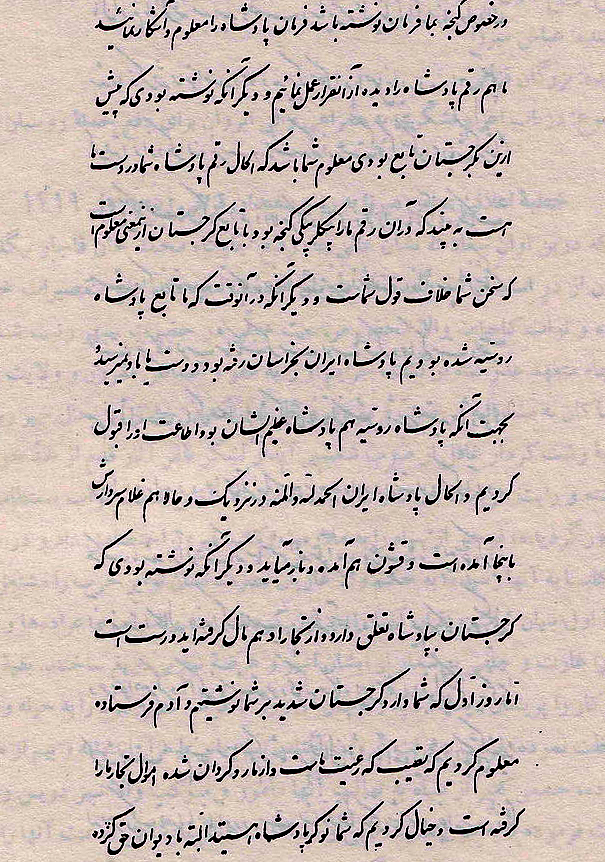 درخصوص گنجه بما فرمان نوشته باشد فرمان پادشاه را معلوم و آشکار نمائید
ما هم رقم پادشاه را دیده از آنقرار عمل نمائیم و دیگر آنکه نوشته بودی که پیش
ازین بگرجستان تابع بودی معلوم شما باشد که الحال رقم پادشاه شما در دست ما
هست به بیند که در آن رقم ما را بیکلر بیکی گنجه بود یا تابع گرجستان ازینمعنی معلوم است
که سخن شما خلاف قول شماست و دیگر آنکه در آنوقت که ما تابع پادشاه
روسیه شده بودیم پادشاه ایران بخراسان رفته بود و دست ما باو نمیرسید
بجهت آنکه پادشاه روسیه هم پادشاه عظیم الشان بود اطاعت او را قبول
کردیم و الحال پادشاه ایران الحمدلله والمنه در نزدیک و حالا هم غلام سردارش
باینجا آمده است و قشون هم آمده و باز میآید و دیگر آنکه نوشته بودی که
گرجستان بپادشاه تعلق دارد و از تجار او هم مال گرفته‌اید درست است
اما روز اول که شما وارد گرجستان شدید بر شما نوشتیم و آدم فرستاده
معلوم کردیم که نصیب که رعیت ماست و از ما روگردان شده اموال تجار ما را
گرفته است و خیال کردیم که شما نوکر پادشاه هستید البته با دیوان حق کرده